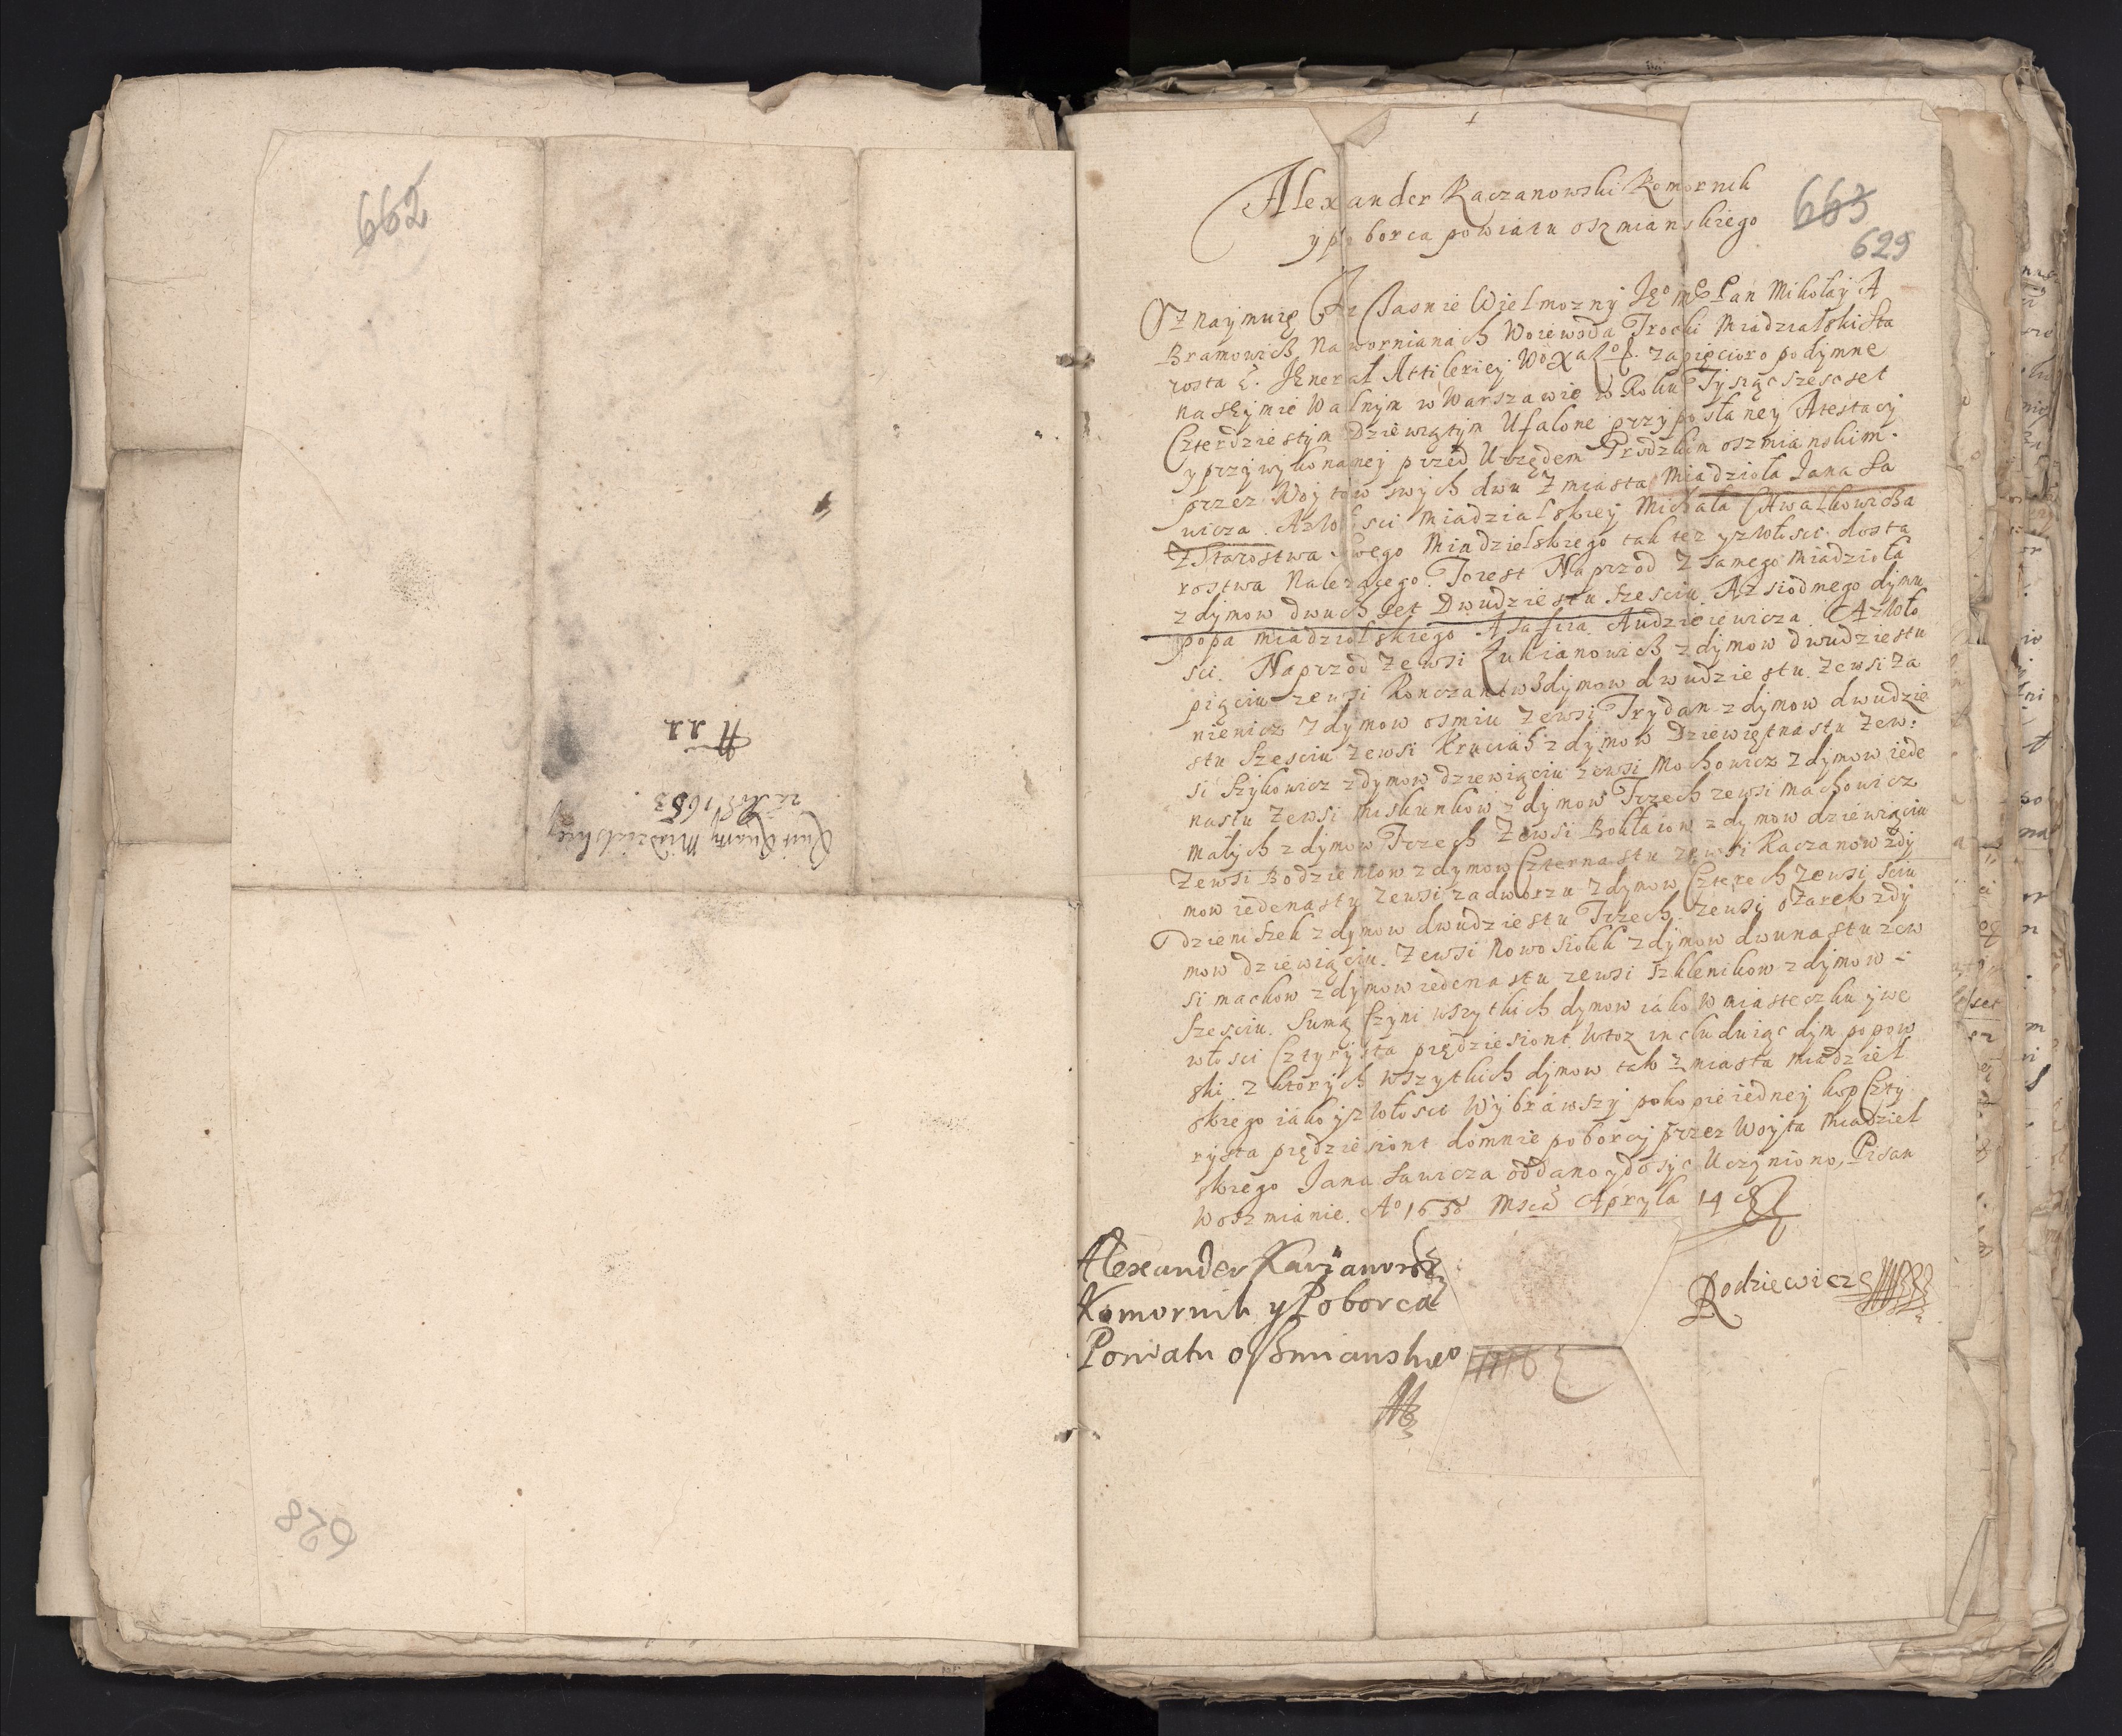 662
Kwit Kwarty Miadzielskiey
za Rok 1653
N 22
628
Alexander Kaczanowski Komornik
y poborca powiatu oszmianskiego
663
629
Oznaymuię Iz Iasnie Wielmozny Jego mc Pan Mikołay A
Bramowicz Na wornianach Woiewoda Trocki Miadzialski Sta
rosta Jenerał Attileriey zapięcioro podymne
na seymie Walnym w Warszawie w Roku Tysiąc szescset
Czterdziestym Dziewiątym Ufalone przy posłaney Atestacy
y przy wykonaney przed Urzędem Grodzkim oszmianskim.
przez Woytow swych dwu z miasta Miadzioła Jana Sa
wicza. Azwłosci miadzialskiey Michała Chwalkowicza
z Starostwa swego Miadzielskiego tak tez y zwłosci dosta
rostwa Nalezącego. Toiest Naprzod z samego Miadzioła
z dymow dwuch set Dwudziestu szesciu. Az siodmego dymu
popa miadziolskiego Audzieiewicza. Azwło
sci. Naprzod zewsi Łukianowicz z dymow dwudziestu
pięciu zewsi Konczanow z dymow dwudziestu. zewsi Za
nienicz z dymow osmiu zewsi Trydan z dymow dwudzie
stu szesciu zewsi Krucias z dymow Dziewiętnastu zew:
si Szykowicz z dymow dziewięciu zewsi Mochowicz z dymow iede
nastu zewsi Miskunkow z dymow Trzech zewsi machowicz
małych z dymow Trzech zewsi Bokłaiow z dymow dziewięciu
zewsi Bodzieniow z dymow Czternastu zewsi Kaczanow z dy
mow iedenastu zewsi zadworzu z dymow Cztech zewsi Sciu
dzieniszek z dymow dwudziestu Trzech. zewsi ozarek z dy
mow dziewięciu. zewsi Nowosiołek z dymow dwunastu zew
si mackow z dymow iedenastu zewsi szklenikow z dymow -
szesciu. Sumą Czyni wszytkich dymow iako w miasteczku y we
włosci Czterysta pięcdziesiont. Wtoz includuiąc dym popow
ski z ktorych wszytkich dymow tak z miasta miadziel
skiego iako y z włosci Wybrawszy po kopie iedney kop Czty
rysta pięcdziesiont domnie poborcy przez Woyta Miadziel
skiego Jana Sawicza oddano y dosyc Uczyniono, Pisan
w oszmianie. Ao 1650 Msca Apryla 14
Alexander Kaczanowski
Komornik y Poborca
Powiatu oszmianskiego
Rodziewicz